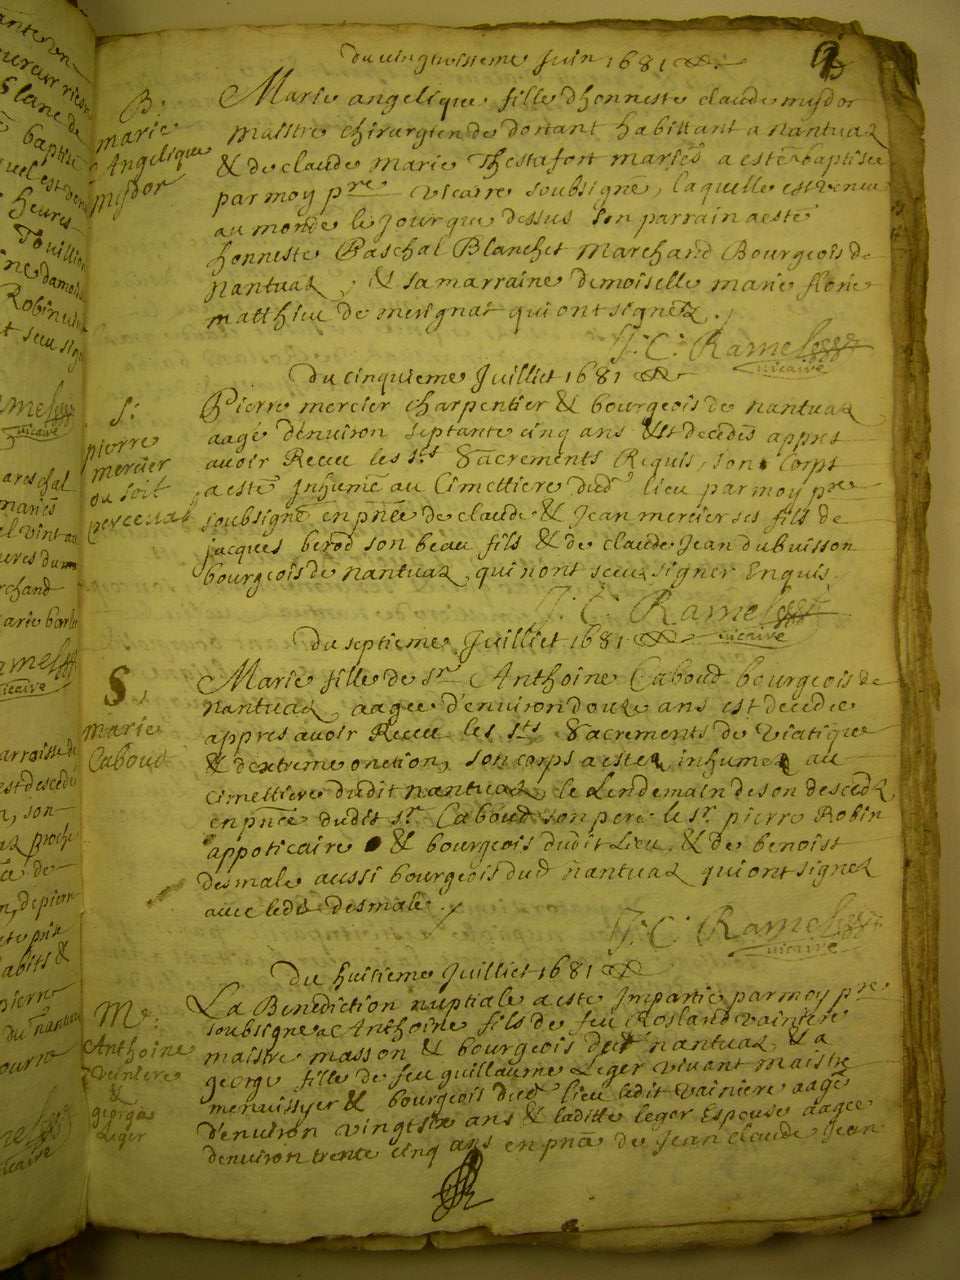 Du vingtuitieme Juin 1681
B:
marie
Angelique
mijdor
Marie angelique fille d'honneste claude mijdor
maistre chirurgien de dortant habittant a nantuaz
& de claude marie Thestafort mariés a esté baptisée
par moy pre vicaire soubsigné, laquelle est venu
au monde le jour que dessus son parrain a esté
honneste Paschal Blanchet marchand Bourgeois de
nantuaz, & sa marraine demoiselle marie florie
matthieu de merignat qui ont signez.
J. C. Ramel
vicaire
Du cinquieme Juilliet 1681
S:
pierre
mercier
ou soit
Pierre mercier charpentier & bourgeois de nantuaz
aagé d'environ septante cinq ans est decedés appres
avoir Receu les sts Sacrements Requis, son corps
a esté Inhumé au Cimettiere dud lieu par moy pre
soubsigné en pnce de claude & Jean mercier ses fils de
jacques berod son beau fils & de claude Jean dubuisson
bourgeois de nantuaz, qui n'ont sceu signer Enquis
J. C. Ramel
vicaire
Du septieme Juilliet 1681
S.
marie
Caboud
Marie fille de Sr Anthoine Caboud bourgeois de
nantuaz aagee d'environ douze ans est decedee
appres avoir Receu les sts Sacrements de viatique
& d'extreme onction, son corps a esté inhumez au
Cimettiere dudit nantuaz le Lendemain de son descedz
en pnce dudit sr Caboud son pere le sr pierre Robin
appoticaire & bourgeois dudit Lieu, & de benoist
desmale aussi bourgeois dud nantuaz qui ont signez
avec ledit desmale.
J. C. Ramel
vicaire
Du huitieme Juilliet 1681
Me:
Anthoine
veiniere
&
georga
Leger
La Benediction nuptiale a este Impartie par moy pre
soubsigne a Anthoine fils de feu Rosland vainiere
maistre masson & bourgeois dud nantuaz, & a
george fille de feu guillaume Leger vivant maistre
menuissyer & bourgeois dud lieu ledit vainiere aagé
d'environ vingt six ans & laditte leger Espouse aagee
denviron trente cinq ans en pnce de Jean claude Jean